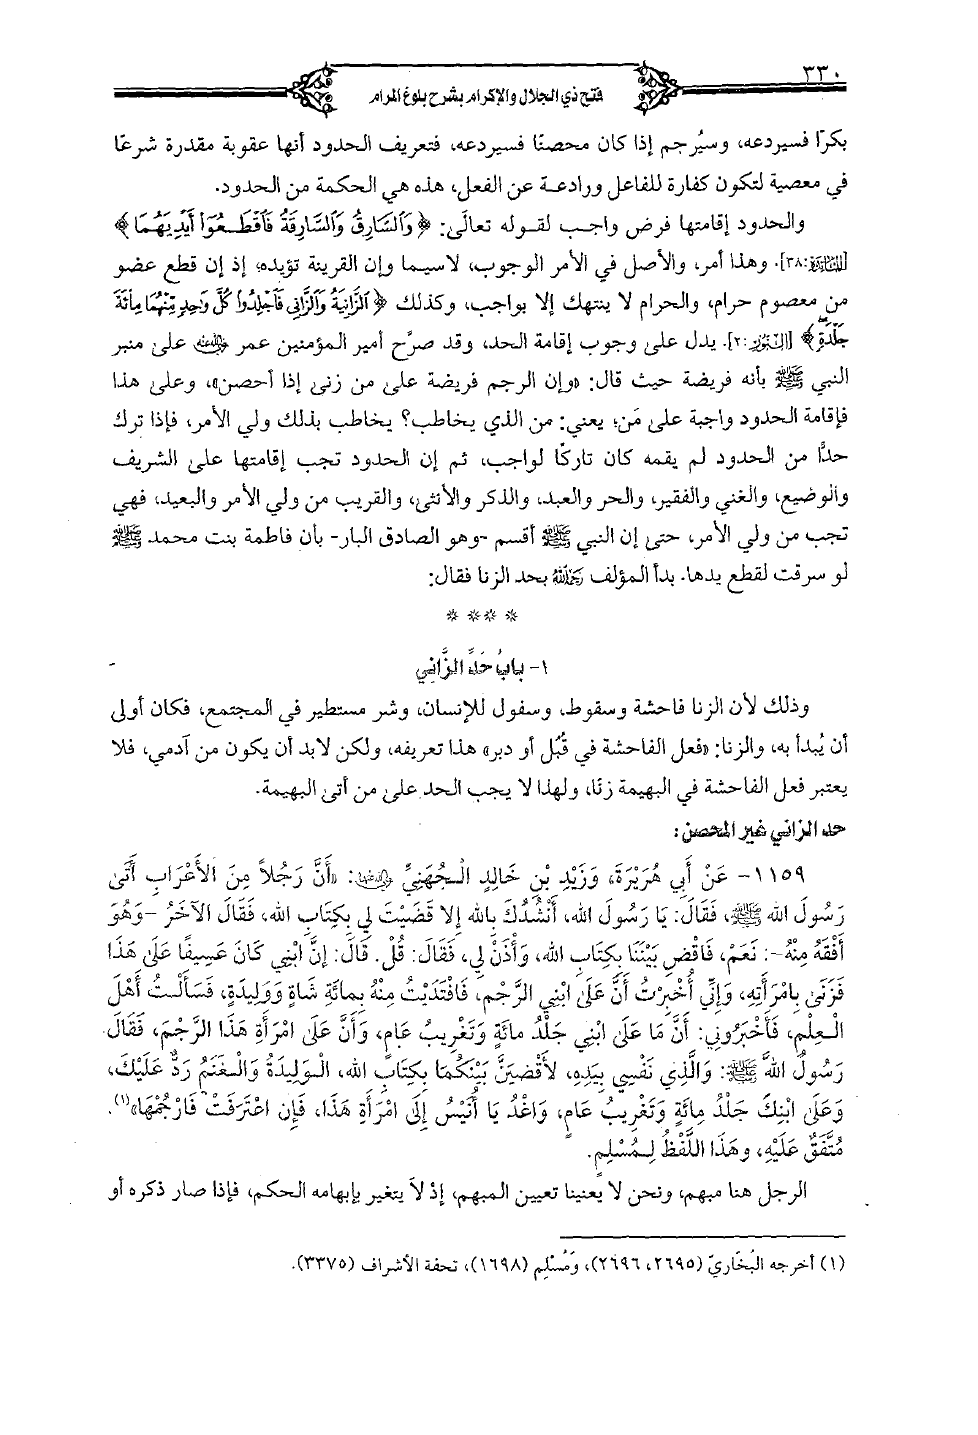 ٣٣٠
فتح ذي الجلال والإكرام بشرح بلوغ المرام
بكرًا فسيردعه، وسيُرجم إذا كان محصنًا فسيردعه، فتعريف الحدود أنها عقوبة مقدرة شرعًا
في معصية لتكون كفارة للفاعل ورادعة عن الفعل، هذه هي الحكمة من الحدود.
والحدود إقامتها فرض واجب لقوله تعالَى: ﴿وَٱلسَّارِقُ وَٱلسَّارِقَةُ فَٱقْطَعُوٓا۟ أَيْدِيَهُمَا﴾
[المائدة:٣٨]. وهذا أمر، والأصل في الأمر الوجوب، لاسيما وإن القرينة تؤيده؛ إذ إن قطع عضو
من معصوم حرام، والحرام لا ينتهك إلا بواجب، وكذلك ﴿ٱلزَّانِيَةُ وَٱلزَّانِي فَٱجْلِدُوا۟ كُلَّ وَٰحِدٍ مِّنْهُمَا مِا۟ئَةَ
جَلْدَةٍ﴾ [النور:٢]. يدل على وجوب إقامة الحد، وقد صرَّح أمير المؤمنين عمر رضي الله عنه على منبر
النبي ﷺ بأنه فريضة حيث قال: «وإن الرجم فريضة على من زنى إذا أحصن»، وعلى هذا
فإقامة الحدود واجبة على مَن؛ يعني: من الذي يخاطب؟ يخاطب بذلك ولي الأمر، فإذا ترك
حدًّا من الحدود لم يقمه كان تاركًا لواجب، ثم إن الحدود تجب إقامتها على الشريف
والوضيع، والغني والفقير، والحر والعبد، والذكر والأنثى، والقريب من ولي الأمر والبعيد، فهي
تجب من ولي الأمر، حتى إن النبي ﷺ أقسم -وهو الصادق البار- بأن فاطمة بنت محمد ﷺ
لو سرقت لقطع يدها. بدأ المؤلف رحمه الله بحد الزنا فقال:
* * * *
١- بابُ حَدِّ الزَّانِي
وذلك لأن الزنا فاحشة وسقوط، وسفول للإنسان، وشر مستطير في المجتمع، فكان أولى
أن يُبدأ به، والزنا: «فعل الفاحشة في قُبُل أو دبر» هذا تعريفه، ولكن لابد أن يكون من آدمي، فلا
يعتبر فعل الفاحشة في البهيمة زنًا، ولهذا لا يجب الحد على من أتى البهيمة.
حد الزاني غير المحصن:
١١٥٩- عَنْ أَبِي هُرَيْرَةَ، وَزَيْدِ بْنِ خَالِدٍ الْجُهَنِيِّ رضي الله عنهما: «أَنَّ رَجُلاً مِنَ الأَعْرَابِ أَتَى
رَسُولَ الله ﷺ، فَقَالَ: يَا رَسُولَ الله، أَنْشُدُكَ بِالله إِلا قَضَيْتَ لِي بِكِتَابِ الله، فَقَالَ الآخَرُ -وَهُوَ
أَفْقَهُ مِنْهُ-: نَعَمْ، فَاقْضِ بَيْنَنَا بِكِتَابِ الله، وَأْذَنْ لِي، فَقَالَ: قُلْ. قَالَ: إِنَّ ابْنِي كَانَ عَسِيفًا عَلَى هَذَا
فَزَنَى بِامْرَأَتِهِ، وَإِنِّي أُخْبِرْتُ أَنَّ عَلَى ابْنِي الرَّجْمَ، فَافْتَدَيْتُ مِنْهُ بِمِائَةِ شَاةٍ وَوَلِيدَةٍ، فَسَأَلْتُ أَهْلَ
الْعِلْمِ، فَأَخْبَرُونِي: أَنَّ مَا عَلَى ابْنِي جَلْدُ مِائَةٍ وَتَغْرِيبُ عَامٍ، وَأَنَّ عَلَى امْرَأَةِ هَذَا الرَّجْمَ، فَقَالَ
رَسُولُ اللهَّ ﷺ: وَالَّذِي نَفْسِي بِيَدِهِ، لأَقْضِيَنَّ بَيْنَكُمَا بِكِتَابِ الله، الْوَلِيدَةُ وَالْغَنَمُ رَدٌّ عَلَيْكَ،
وَعَلَى ابْنِكَ جَلْدُ مِائَةٍ وَتَغْرِيبُ عَامٍ، وَاغْدُ يَا أُنَيْسُ إِلَى امْرَأَةِ هَذَا، فَإِنِ اعْتَرَفَتْ فَارْجُمْهَا»(١).
مُتَّفَقٌ عَلَيْهِ، وَهَذَا اللَّفْظُ لِمُسْلِمٍ.
الرجل هنا مبهم، ونحن لا يعنينا تعيين المبهم، إذْ لاَ يتغير بإبهامه الحكم، فإذا صار ذكره أو
(١) أخرجه البُخَاريّ (٢٦٩٥، ٢٦٩٦)، وَمُسْلِم (١٦٩٨)، تحفة الأشراف (٣٣٧٥).